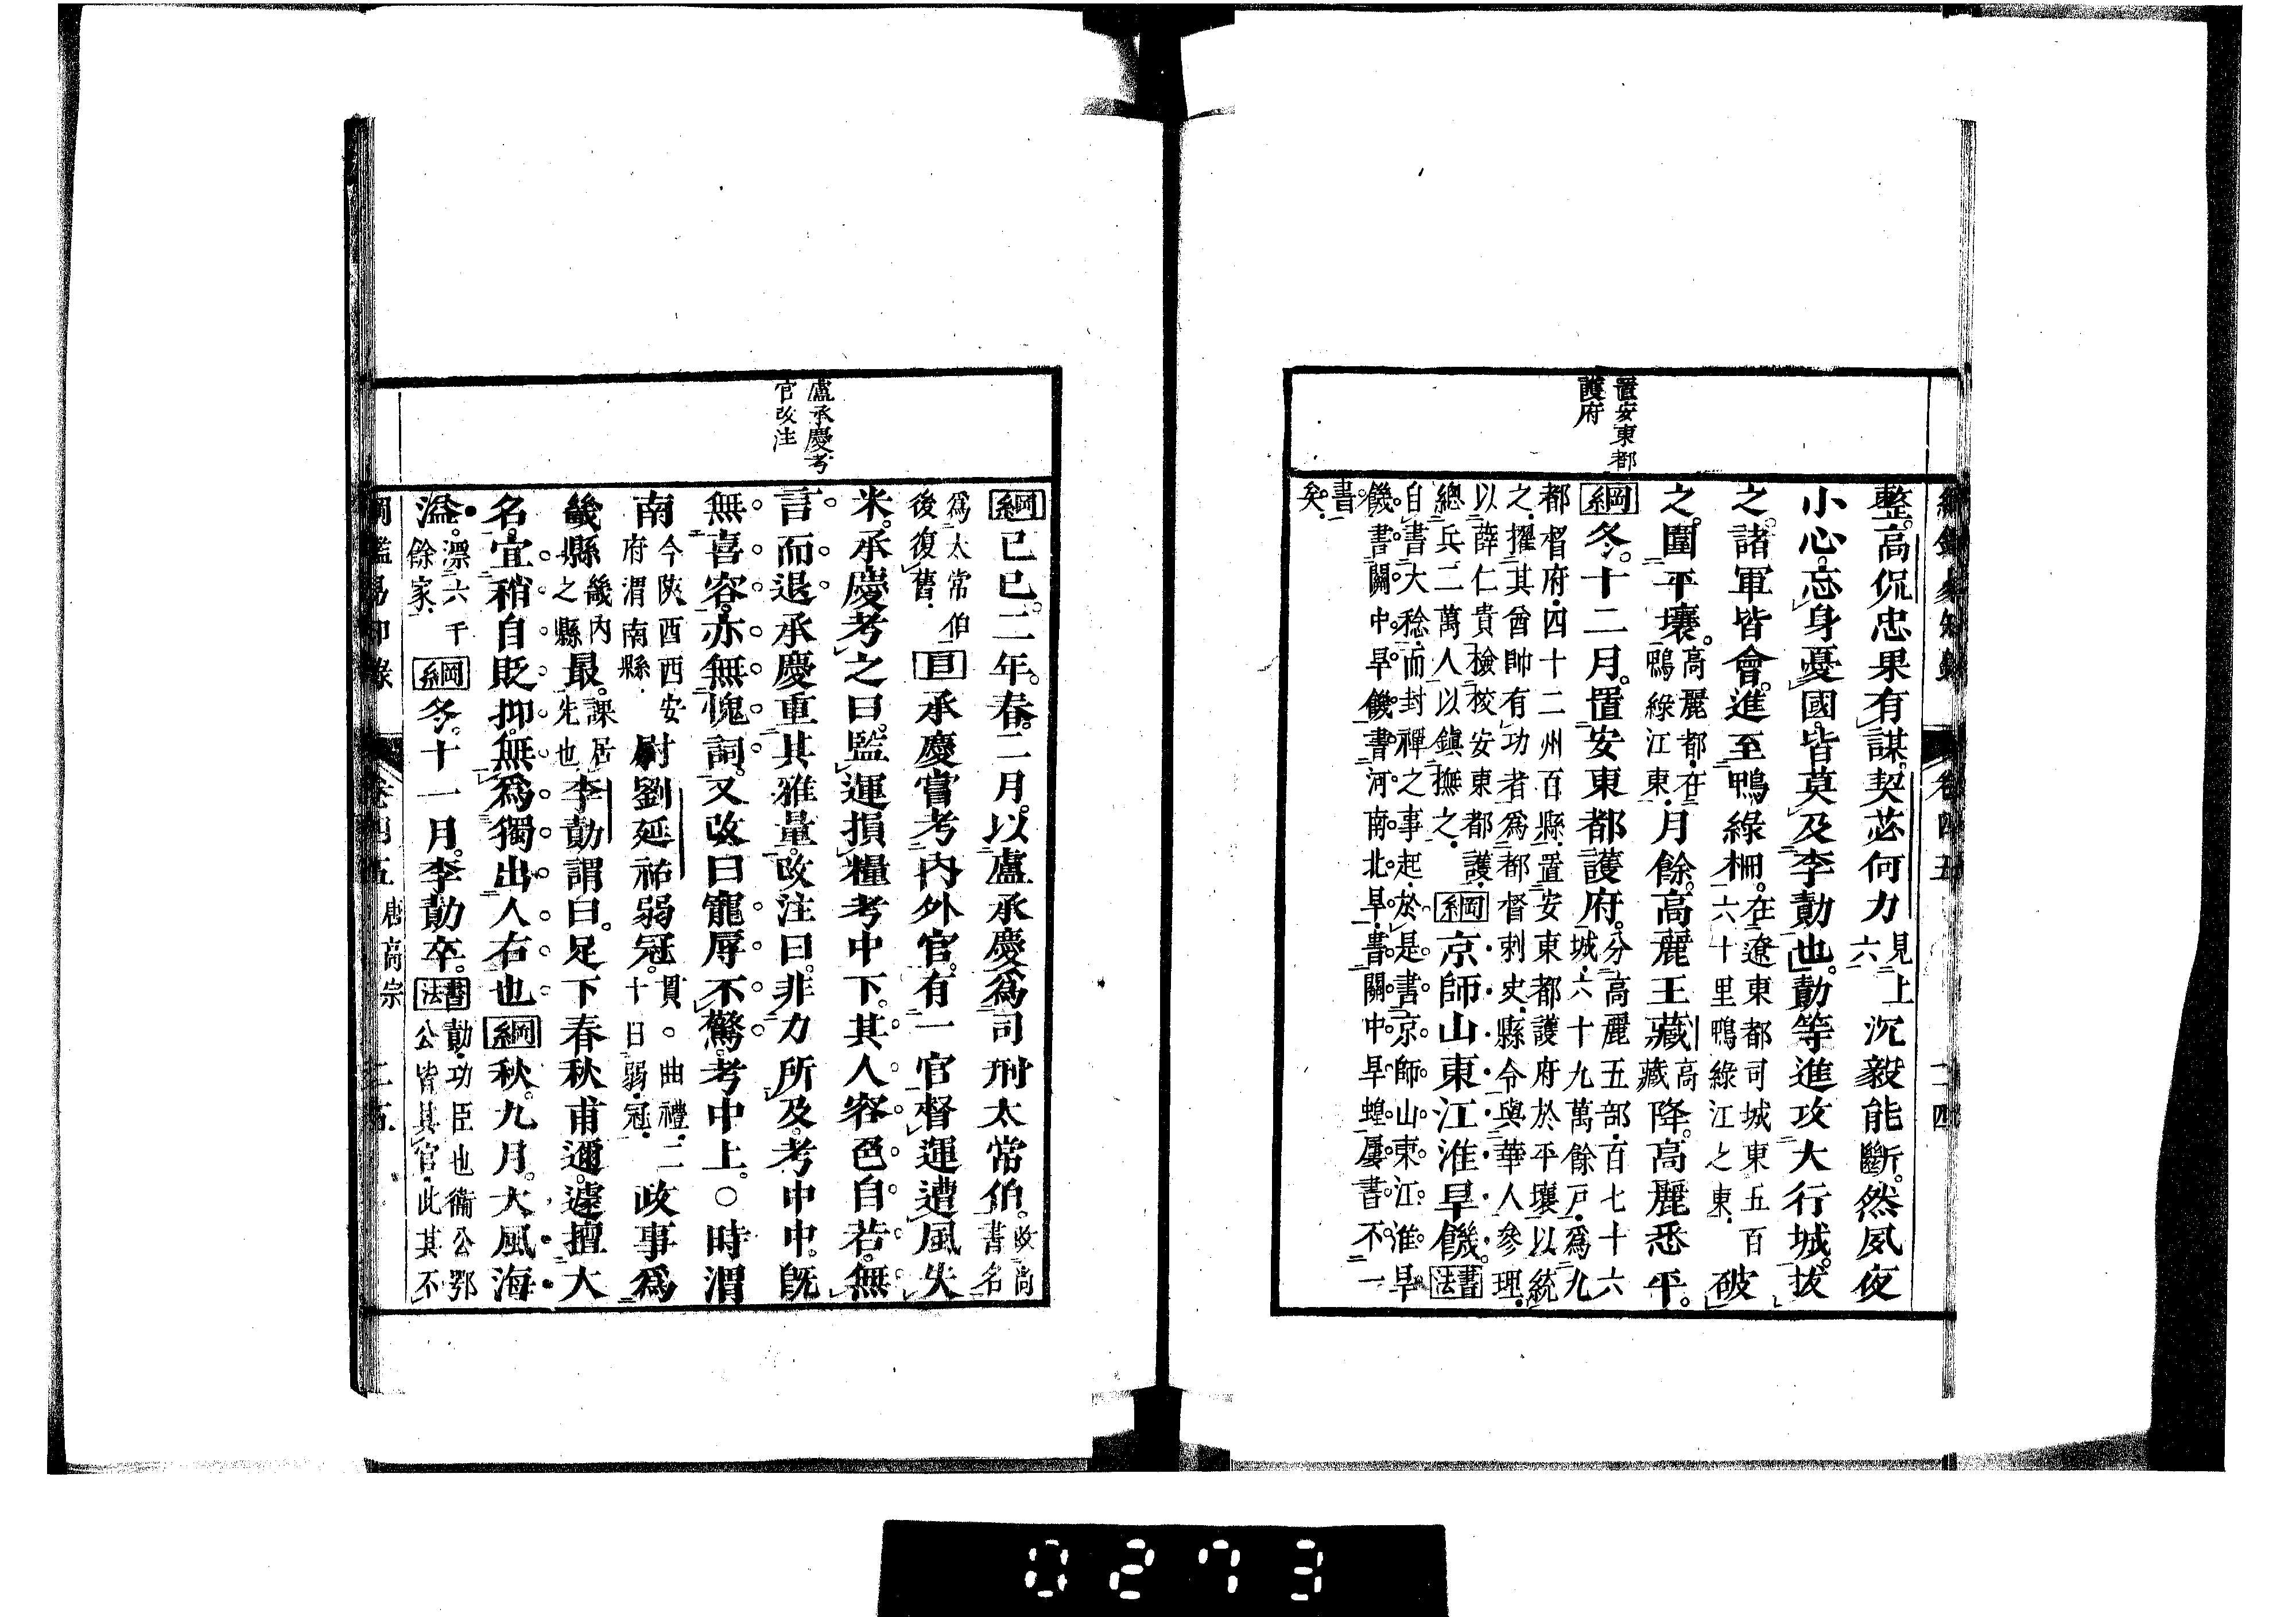 置安東都
護府
整高侃忠果有謀契苾何力見上六沉毅能斷然夙夜
小心忘身憂國皆莫及李勣也勣等進攻大行城拔
之諸軍皆會進至鴨綠柵在遼東都司城東五百六十里鴨綠江之東破
之圍平壤高麗都在鴨綠江東月餘高麗王藏高藏降高麗悉平
綱冬十二月置安東都護府分高麗五部百七十六城六十九萬餘戸爲九
都督府四十二州百縣置安東都護府於平壤以統
之擢其酋帥有功者爲都督刺史縣令與華人參理
以薛仁貴檢校安東都護
總兵二萬人以鎭撫之綱京師山東江淮旱饑書法
自書大稔而封禪之事起於是書京師山東江淮旱
饑書關中旱饑書河南北旱書關中旱蝗屢書不一
書
矣
盧承慶考
官改注
綱己巳二年春二月以盧承慶爲司刑太常伯改尚書名
爲太常伯
後復舊目承慶嘗考內外官有一官督運遭風失
米承慶考之曰監運損糧考中下其人容色自若無
言而退承慶重其雅量改注曰非力所及考中中旣
無喜容亦無愧詞又改曰寵辱不驚考中上○時渭
南今陝西西安府渭南縣尉劉延祐弱冠貫○曲禮二十日弱冠政事爲
畿縣畿内之縣最課居先也李勣謂曰足下春秋甫邇遽擅大
名宜稍自貶抑無爲獨出人右也綱秋九月大風海
溢漂六千餘家綱冬十一月李勣卒書法勣功臣也衞公鄂公皆其官此其不
唐高宗